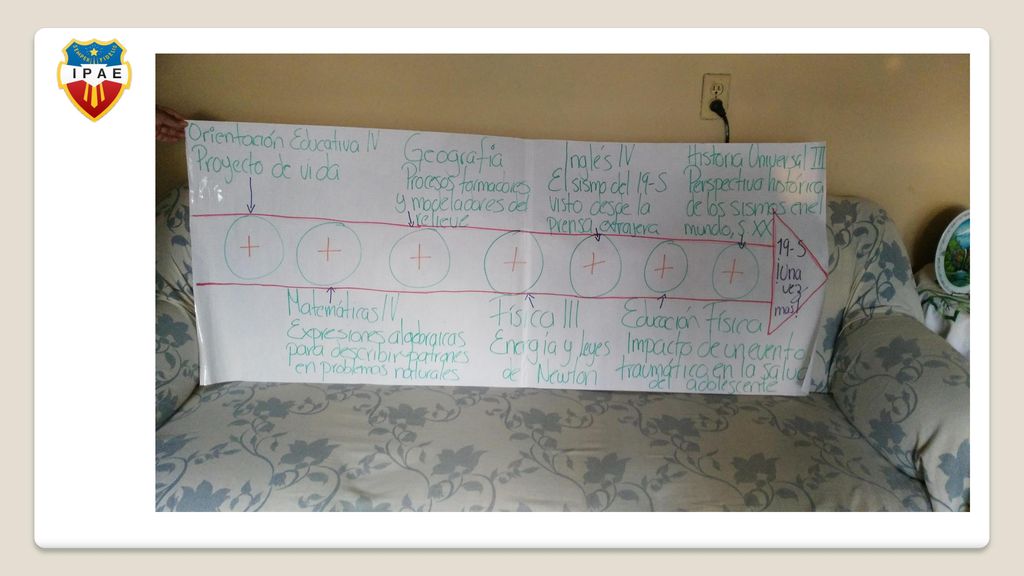 SEMPER FIDELIS
IPAE
Orientación Educativa IV
Proyecto de vida
Geografía
Procesos formadores
y modeladores del
relieve
Inglés IV
El sismo del 19-S
visto desde la
prensa extrajera
Historia Universal III
Perspectiva histórica
de los sismos en el
mundo, s. XX
19-S
¡Una
vez
mas!
Matemáticas IV
Expresiones algebraicas
para describir patrones
en problemas naturales
Física III
Energía y leyes
de Newton
Educación Física
Impacto de un evento
traumático en la salud
del adolescente